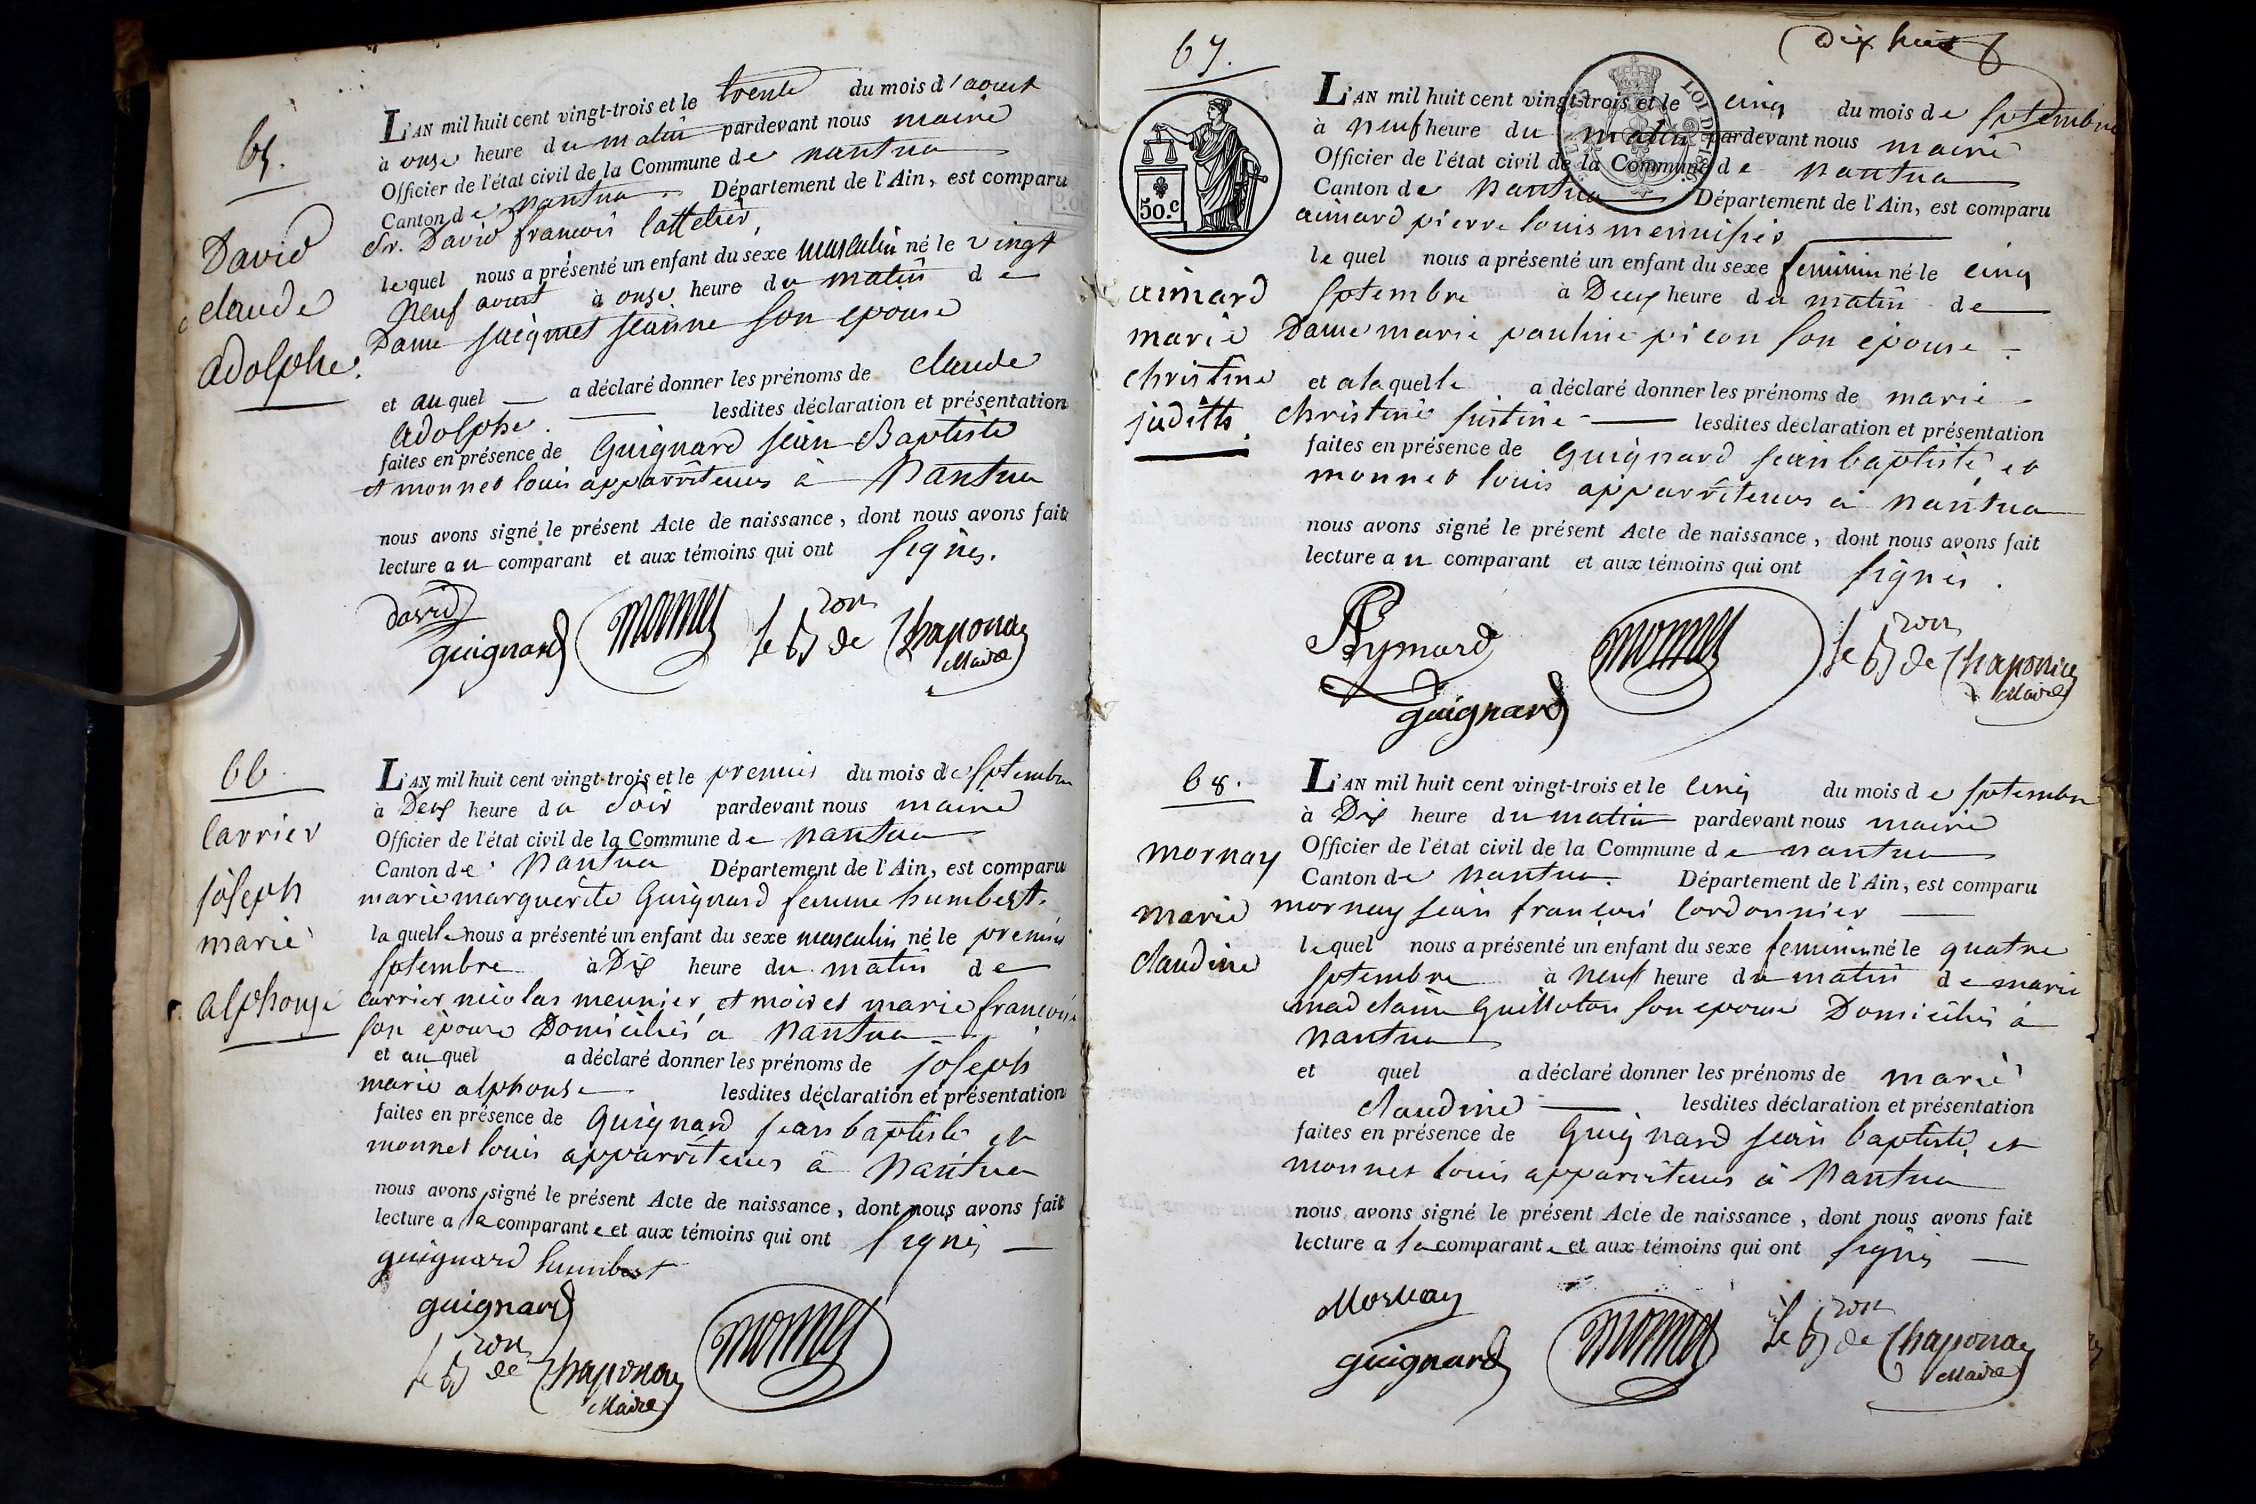 65.
David
claude
adolphe.
L'AN mil huit cent vingt-trois et le trente du mois d'aoust
à onze heure du matin pardevant nous maire
Officier de l'état civil de la Commune de nantua
Canton de nantua. Département de l'Ain, est comparu
Sr. David francois lattelier
lequel nous a présenté un enfant du sexe masculin né le vingt
neuf aoust à onze heure du matin de
Dame jacqmet jeanne son epouse
et au quel a déclaré donner les prénoms de claude
adolphe. lesdites déclaration et présentation
faites en présence de Guignard jean Baptiste
et monnet louis apparriteurs à Nantua
nous avons signé le présent Acte de naissance, dont nous avons fait
lecture au comparant et aux témoins qui ont signés.
david
guignard monnet le Bron de Chaponay
Maire
66.
Carrier
joseph
marie
alphonse
L'AN mil huit cent vingt-trois et le premier du mois de septembre
à Deux heure du soir pardevant nous maire
Officier de l'état civil de la Commune de nantua
Canton de Nantua Département de l'Ain, est comparu
marie marguerite Guignard femme humbert.
la quelle nous a présenté un enfant du sexe masculin né le premier
septembre à Dix heure du matin de
carrier nicolas meunier, et moiret marie francoise
son epouse Domiciliés a nantua
et au quel a déclaré donner les prénoms de joseph
marie alphonse lesdites déclaration et présentation
faites en présence de Guignard jean baptiste et
monnet louis apparriteurs à Nantua
nous avons signé le présent Acte de naissance, dont nous avons fait
lecture a la comparante et aux témoins qui ont signés
guignard humbert
guignard monnet
le Bron de Chaponay
Maire
dix huit
67.
LOI DE 1816
50.c
aimard
marie
christine
judith.
L'AN mil huit cent vingt-trois et le cinq du mois de septembre
à neuf heure du matin pardevant nous maire
Officier de l'état civil de la Commune de nantua
Canton de Nantua Département de l'Ain, est comparu
aimard pierre louis menuisier
le quel nous a présenté un enfant du sexe feminin né le cinq
septembre à Deux heure du matin de
Dame marie pauline picon son epouse
et a la quelle a déclaré donner les prénoms de marie
christine justine lesdites déclaration et présentation
faites en présence de Guignard jean baptiste et
monnet louis apparriteurs à nantua
nous avons signé le présent Acte de naissance, dont nous avons fait
lecture au comparant et aux témoins qui ont signés.
Aymard monnet le Bron de Chaponay
Maire
guignard
68.
mornay
marie
claudine
L'AN mil huit cent vingt-trois et le cinq du mois de septembre
à Dix heure du matin pardevant nous maire
Officier de l'état civil de la Commune de nantua
Canton de Nantua. Département de l'Ain, est comparu
mornay jean françois Cordonnier
le quel nous a présenté un enfant du sexe feminin né le quatre
septembre à neuf heure du matin de marie
madelaine Guilloton son epouse Domiciliés à
nantua
et quel a déclaré donner les prénoms de marie
claudine lesdites déclaration et présentation
faites en présence de Guignard jean baptiste, et
monnet louis apparriteurs à Nantua
nous avons signé le présent Acte de naissance, dont nous avons fait
lecture a la comparante et aux témoins qui ont signés
Mornay
guignard monnet le Bron de Chaponay
Maire